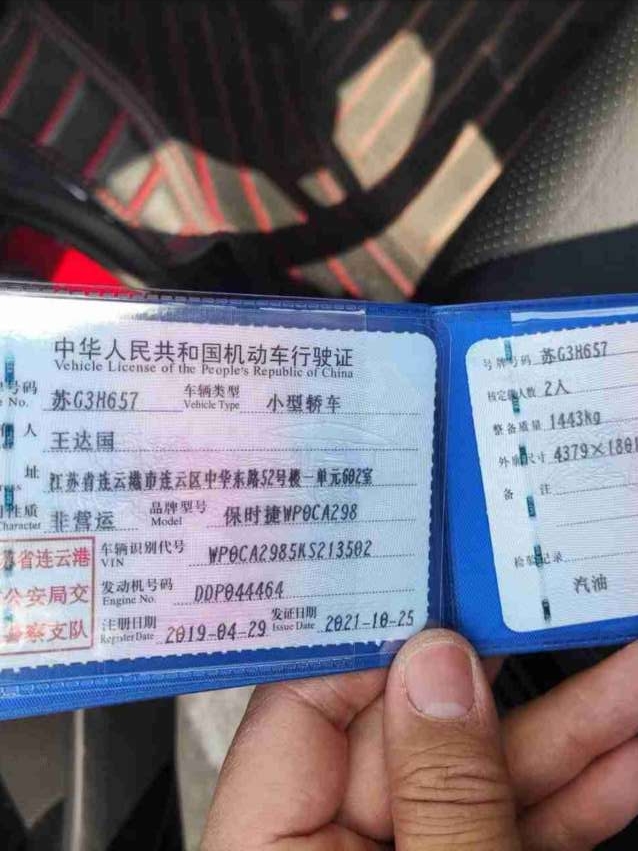 中华人民共和国机动车行驶证
Vehicle License of the People's Republic of China
号码 苏G3H657 车辆类型 小型轿车
No. Vehicle Type
人 王达国
址 江苏省连云港市连云区中华东路52号楼一单元602室
性质 非营运 品牌型号 保时捷WP0CA298
Character Model
苏省连云港 车辆识别代号 WP0CA2985KS213502
VIN
公安局交 发动机号码 DDP044464
Engine No.
警察支队 注册日期 2019-04-29 发证日期 2021-10-25
Register Date Issue Date
号牌号码 苏G3H657
核定载人数 2人
整备质量 1443kg
外廓尺寸 4379×1801
备 注
检验记录
汽油